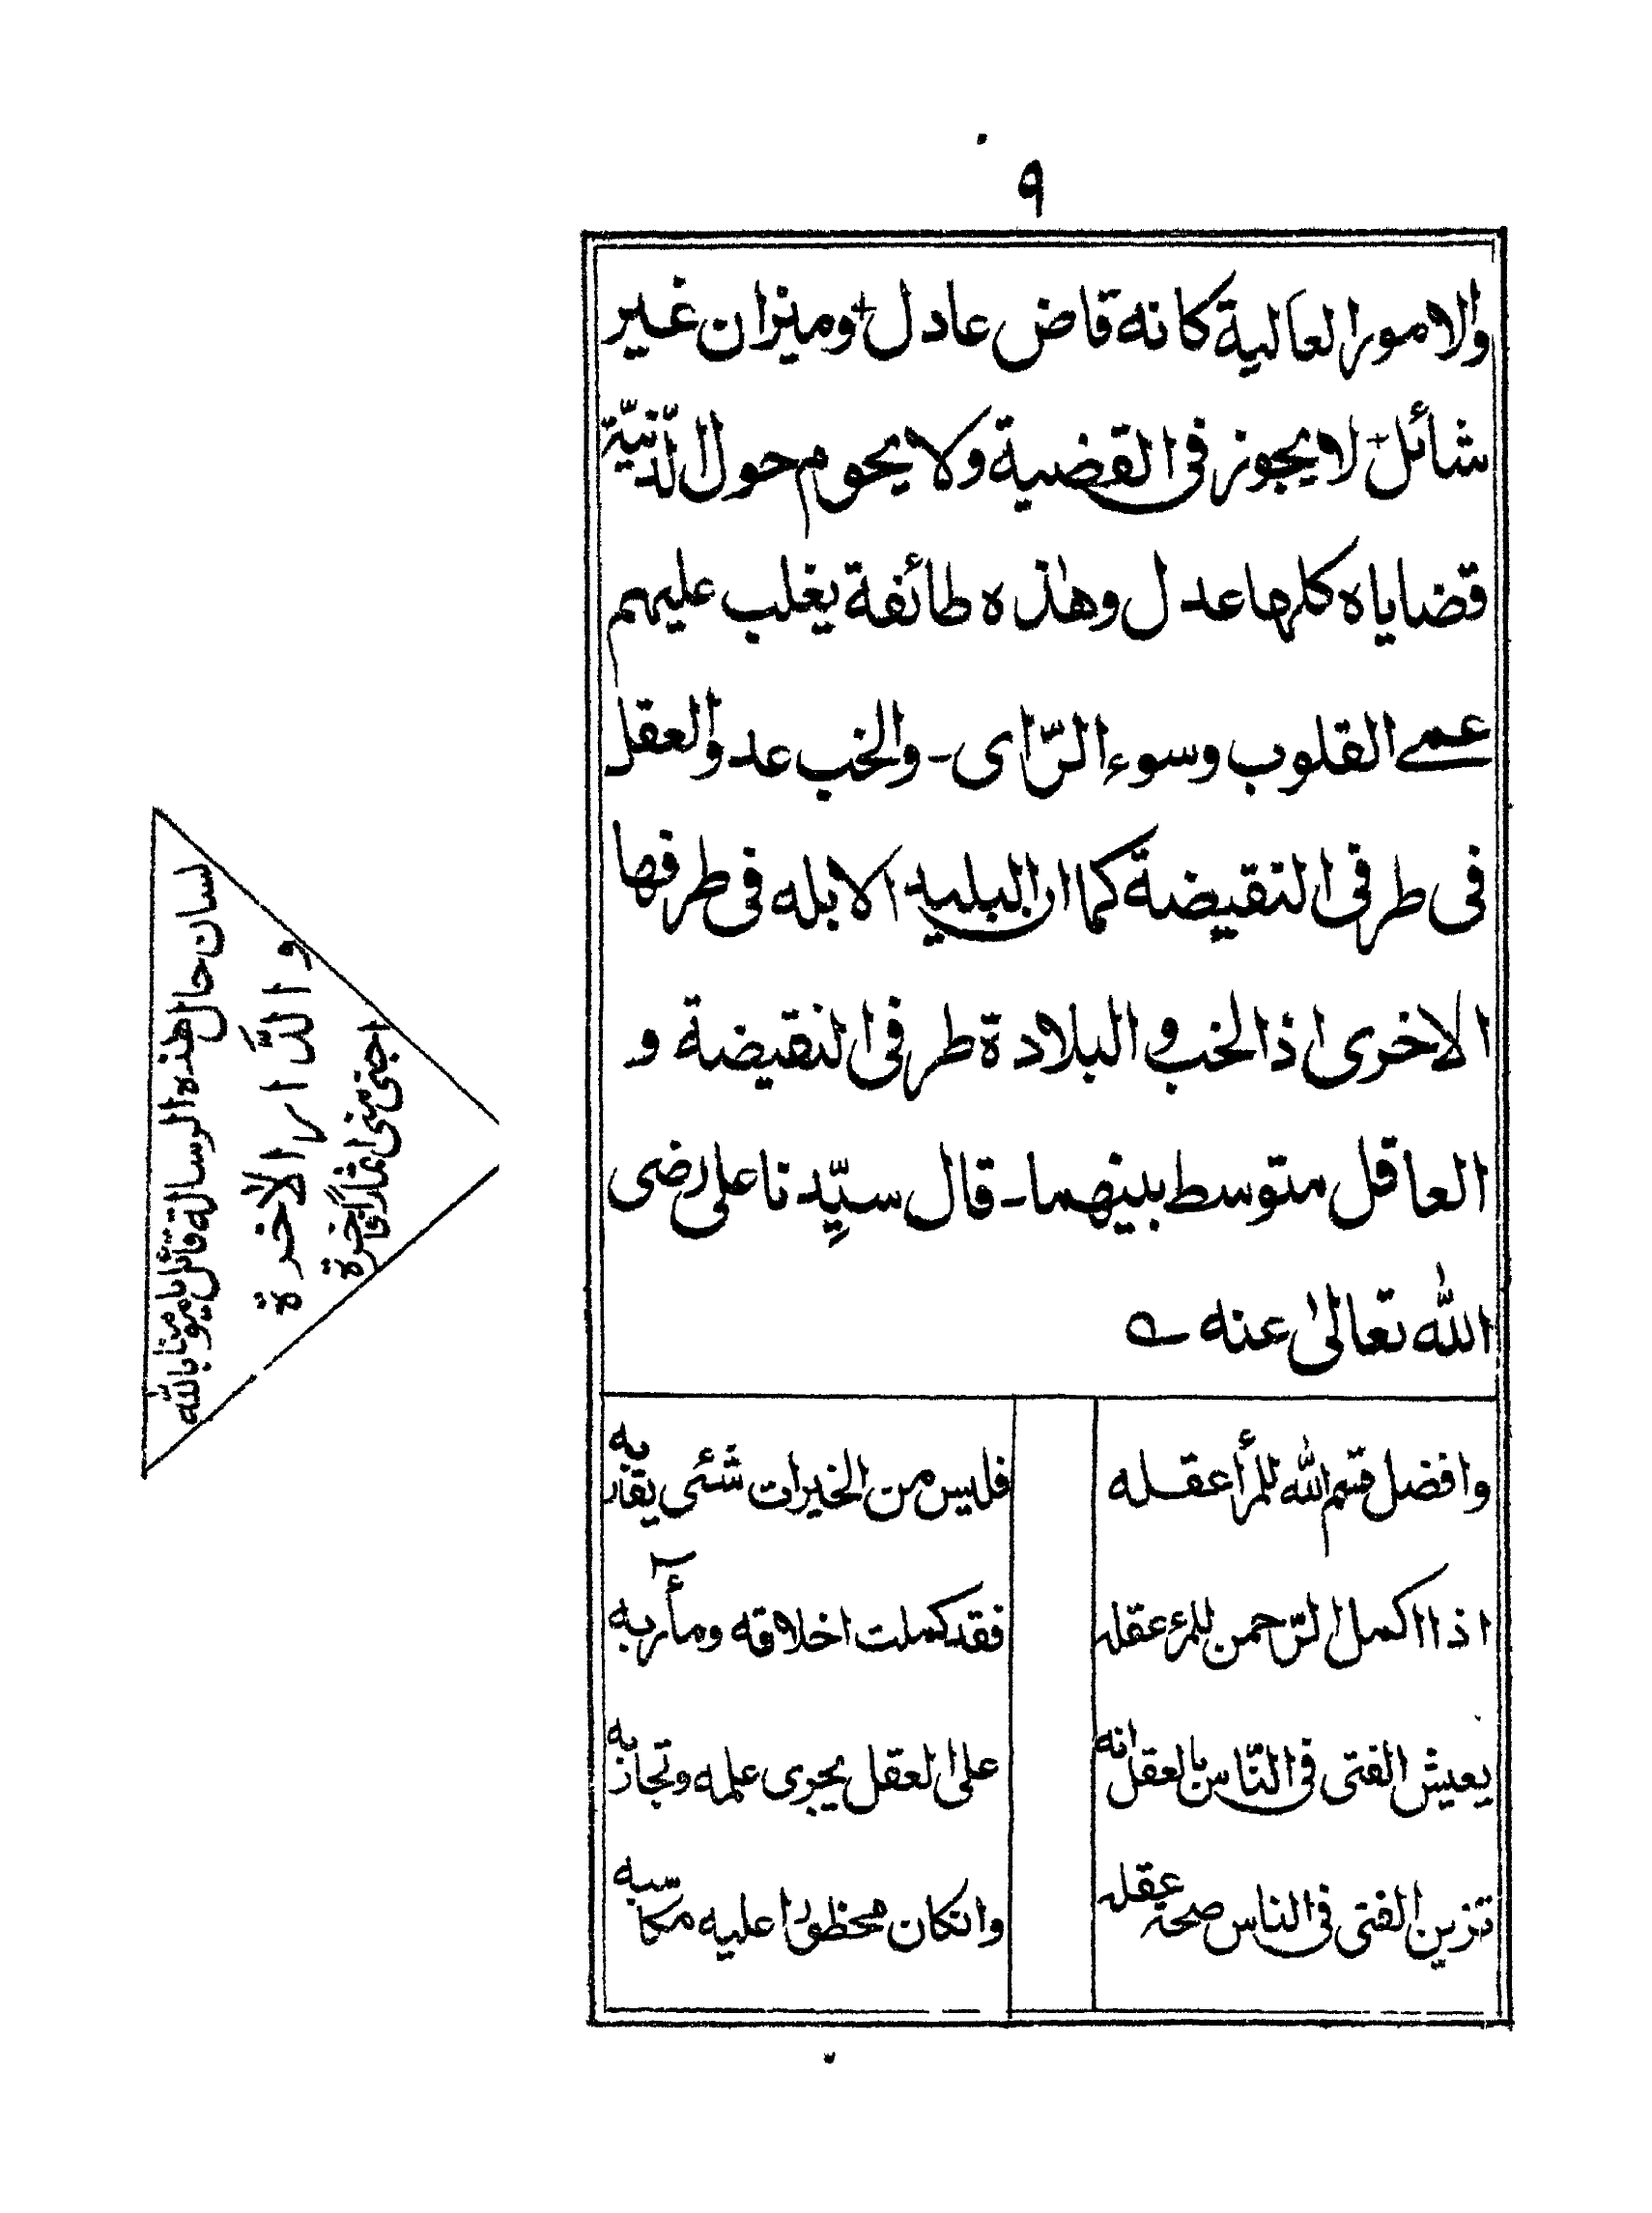 ٩
والامور العالية كانه قاض عادل + وميزان غير
شائل + لا يجوز فى القضية ولا يحوم حول الدّنيّة
قضاياه كلها عدل وهٰذه طائفة يغلب عليهم
عمے القلوب وسوء الرّاى ـ والخب عد والعقل
فى طرفى النقيضة كما ان البليد الابله فى طرفها
الاخرى اذ الخب والبلادة طرفى النقيضة و
العاقل متوسط بينهما ـ قال سيِّدنا على رضى
الله تعالىٰ عنه ے
وافضل قسم الله للمرأ عقله فليس من الخيرات شئى يقاربه
اذا اكمل الرّحمن للمرء عقله فقد كملت اخلاقه ومأربه
يعيش الفتى فى النّاس بالعقل انه على العقل يجرى علمه وتجاربه
تزين الفتى فى الناس صحة عقله وانكان محظورا عليه مكاسبه
لسان حال هٰذه الرسالة قائل يا مومنا بالله
والدّار الاٰخرة
اجتى منى اثمارا فاخرة